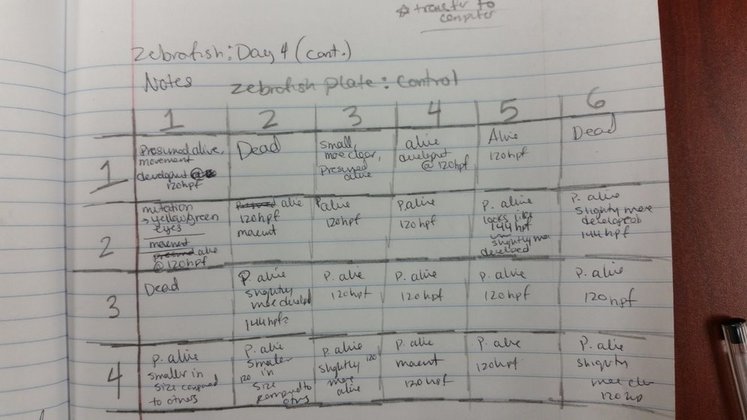 ☆ transfer to
computer
Zebrafish: Day 4 (cont.)
Notes zebrafish plate: control
1 2 3 4 5 6
1
Presumed alive,
movement
developmt @
120hpf
Dead
small,
more clear,
presumed
alive
alive
developmt
@ 120hpf
Alive
120hpf
Dead
2
mutation
→ yellow/green
eyes
alive
@ 120hpf
alive
120hpf
movemt
P. alive
120hpf
P. alive
120hpf
P. alive
looks like
144hpf
slightly more
developed
P. alive
slightly more
developed
144hpf
3
Dead
P. alive
slightly
more developed
144hpf
P. alive
120hpf
P. alive
120hpf
P. alive
120hpf
P. alive
120hpf
4
P. alive
smaller in
size compared
to others
P. alive
smaller
120 in
size
compared to
others
P. alive
slightly 120
more
alive
P. alive
movemt
120hpf
P. alive
120hpf
P. alive
slightly
more
120hp